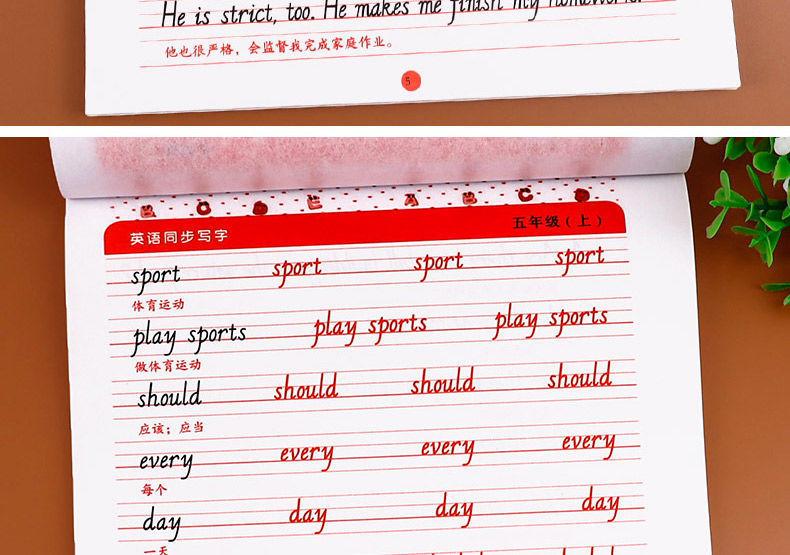 He is strict, too. He makes me finish my homework.
他也很严格，会监督我完成家庭作业。
5
B C D E A B C D
英语同步写字 五年级(上)
sport sport sport sport
体育运动
play sports play sports play sports
做体育运动
should should should should
应该；应当
every every every every
每个
day day day day
一天